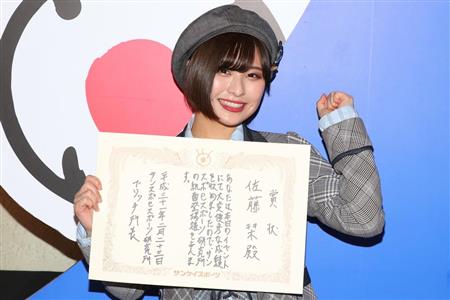 賞状
佐藤栞殿
あなたは本日のイベント
にて大変優秀な成績
を収めましたので、サン
スポeスポーツ研究所
の級面栄誉賞を与えま
す。
平成三十一年二月二十三日
サンスポeスポーツ研究所
サンケイスポーツ